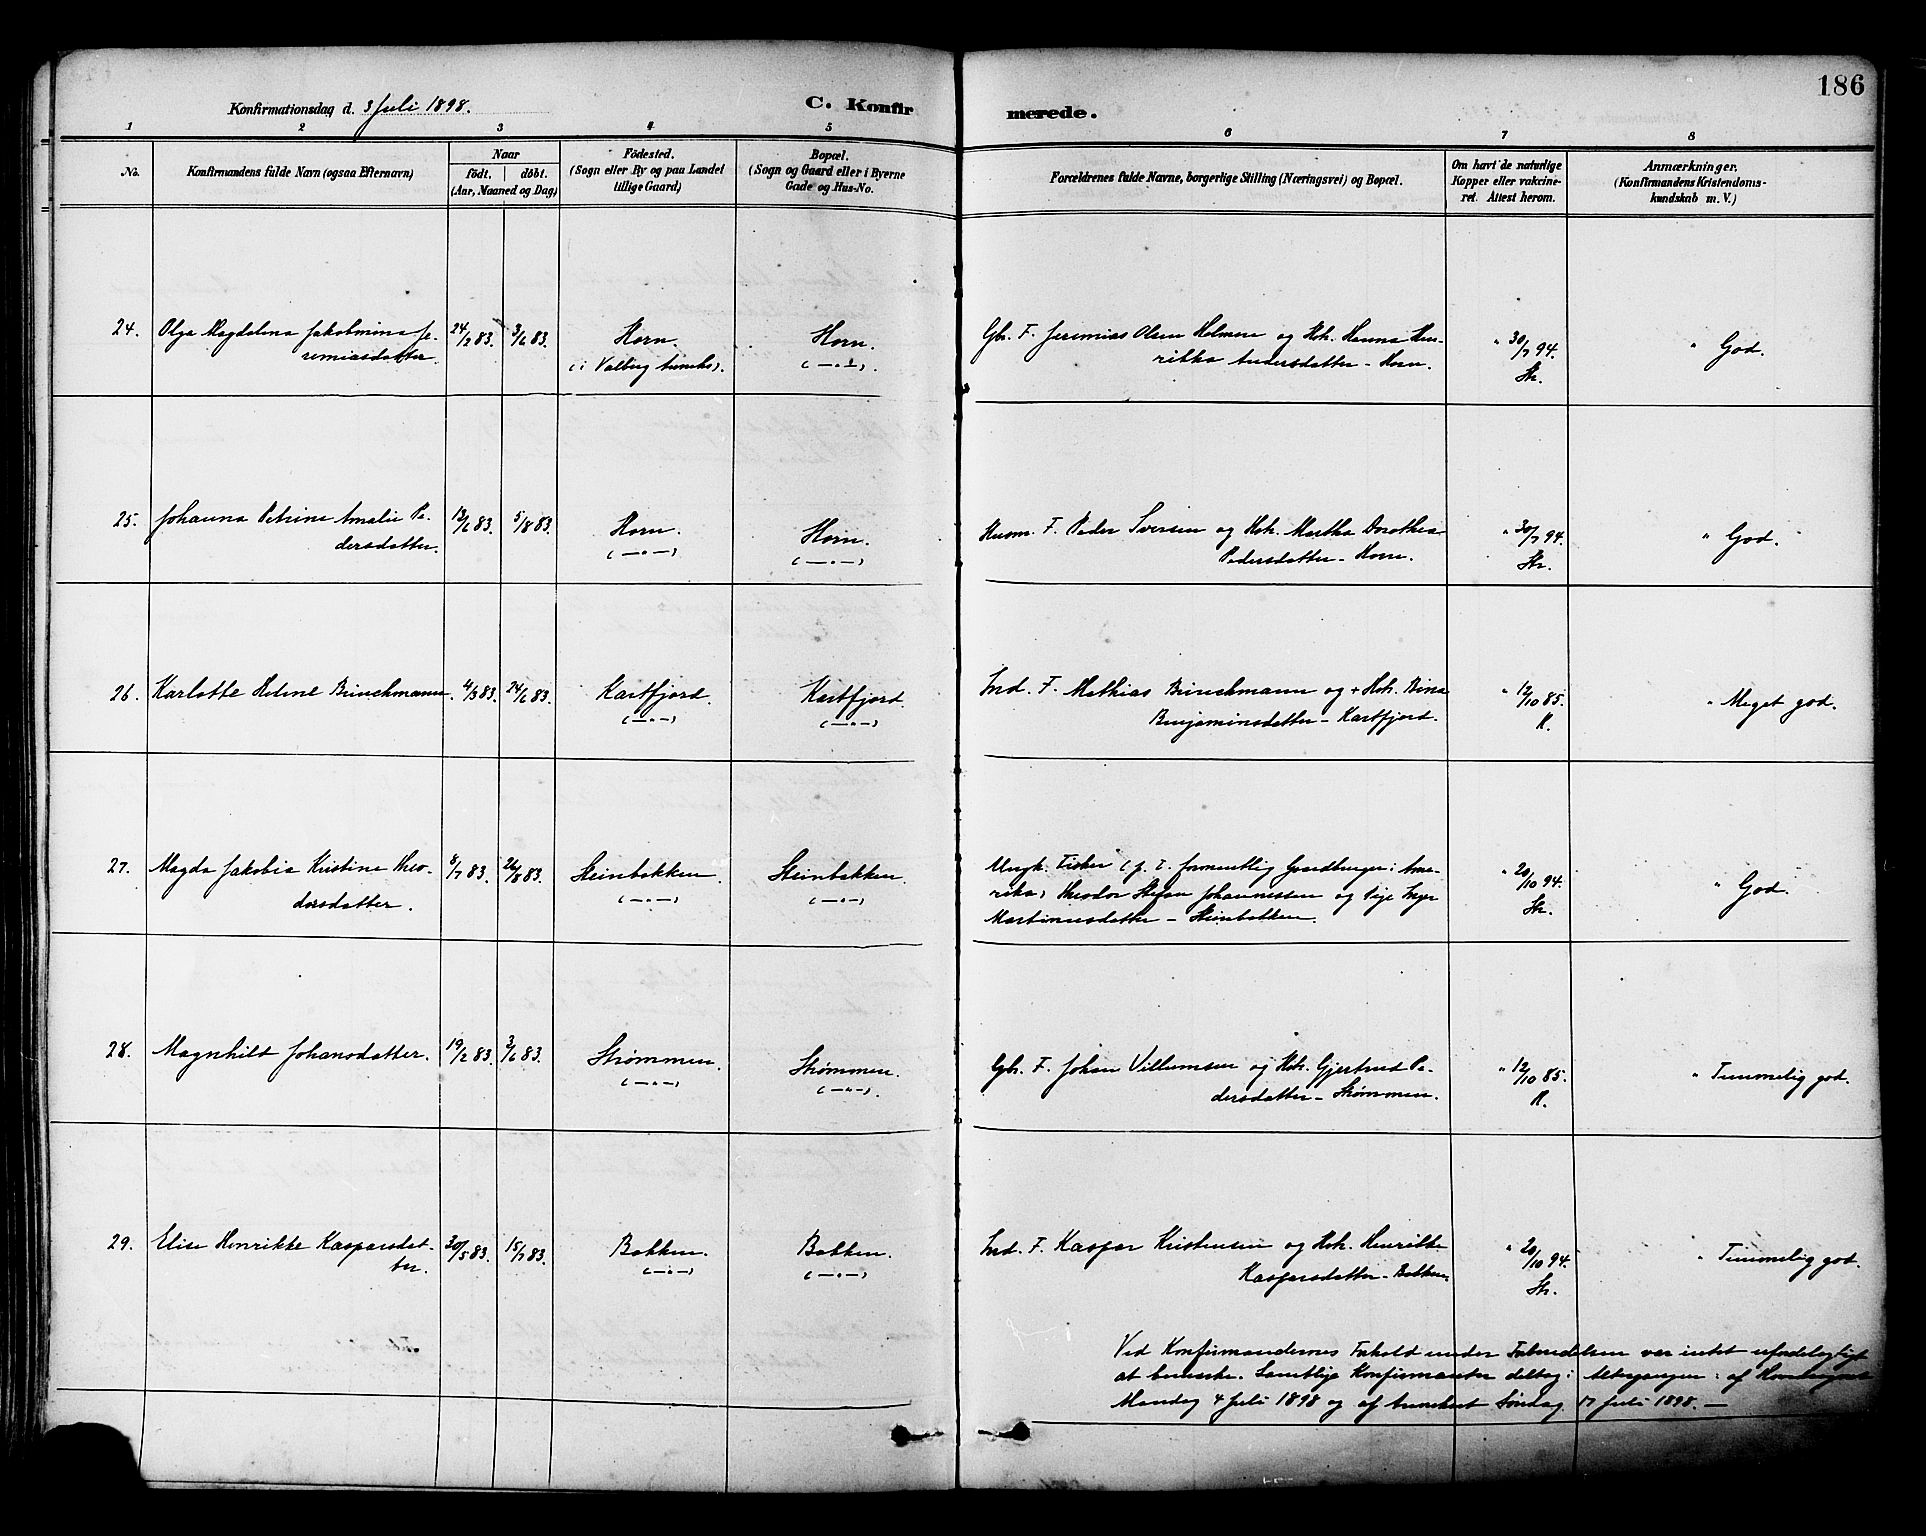 186
Konfirmationsdag d. 3 Juli 1898.
C. Konfirmerede.
1 2 3 4 5 6 7 8
No.
Konfirmandens fulde Navn (ogsaa Efternavn)
Naar
födt. döbt.
(Aar, Maaned og Dag)
Födested.
(Sogn eller By og paa Landet
tillige Gaard)
Bopæl.
(Sogn og Gaard eller i Byerne
Gade og Hus-No.
Forældrenes fulde Navne, borgerlige Stilling (Næringsvei) og Bopæl.
Om havt de naturlige
Kopper eller vakcine-
ret. Attest herom.
Anmærkninger.
(Konfirmandens Kristendoms-
kundskab m. V.)
24. Olga Magdalena Jakobmina Je- 24/2 83. 3/6 83. Horn. Horn. Gbr. F. Jeremias Olsen Holmen og Hstr. Hanna Hen- " 30/7 94. " God.
remiasdatter. (i Valberg Anneks). (—"—). rikka Andersdatter - Horn. Str.
25. Johanna Petrine Amalie Pe- 13/6 83. 5/8 83. Horn. Horn. Husm. F. Peder Iversen og Hstr. Martha Dorothea " 30/7 94. " God.
dersdatter. (—"—) (—"—) Pedersdatter - Horn. Str.
26. Karlotte Helene Brinchmann. 4/3 83. 24/6 83. Kartfjord. Kartfjord. Ind. F. Mathias Brinchmann og + Hstr. Bina " 12/10 85. " Meget god.
(—"—) (—"—) Benjaminsdatter - Kartfjord. K.
27. Magda Jakobia Kristine Theo- 8/7 83. 26/8 83. Steinbakken. Steinbakken. Ungk. Fisker (f. T. formentlig Grundbruger i Ame- " 20/10 94. " God.
dorsdatter. (—"—) (—"—) rika) Theodor Stefan Johannessen og Pige Inger Str.
Martinusdatter - Steinbakken.
28. Magnhild Johansdatter. 19/2 83. 3/6 83. Strømmen. Strømmen. Gbr. F. Johan Villumsen og Hstr. Gjertrud Pe- " 12/10 85. " Temmelig god.
(—"—) (—"—). dersdatter - Strømmen. K.
29. Elise Henrikke Kaspersdat- 30/5 83. 15/7 83. Bakken. Bakken. Ind. F. Kasper Kristensen og Hstr. Henrikke " 20/10 94. " Temmelig god.
ter. (—"—) (—"—) Kaspersdatter - Bakken. Str.
Ved Konfirmandernes Forhold under Forberedelsen var intet ufordelagtigt
at bemærke. Samtlige Konfirmanter deltog i Altergangen: af Hovedsognet
Mandag 4 Juli 1898 og af Annekset Søndag 17 Juli 1898. —